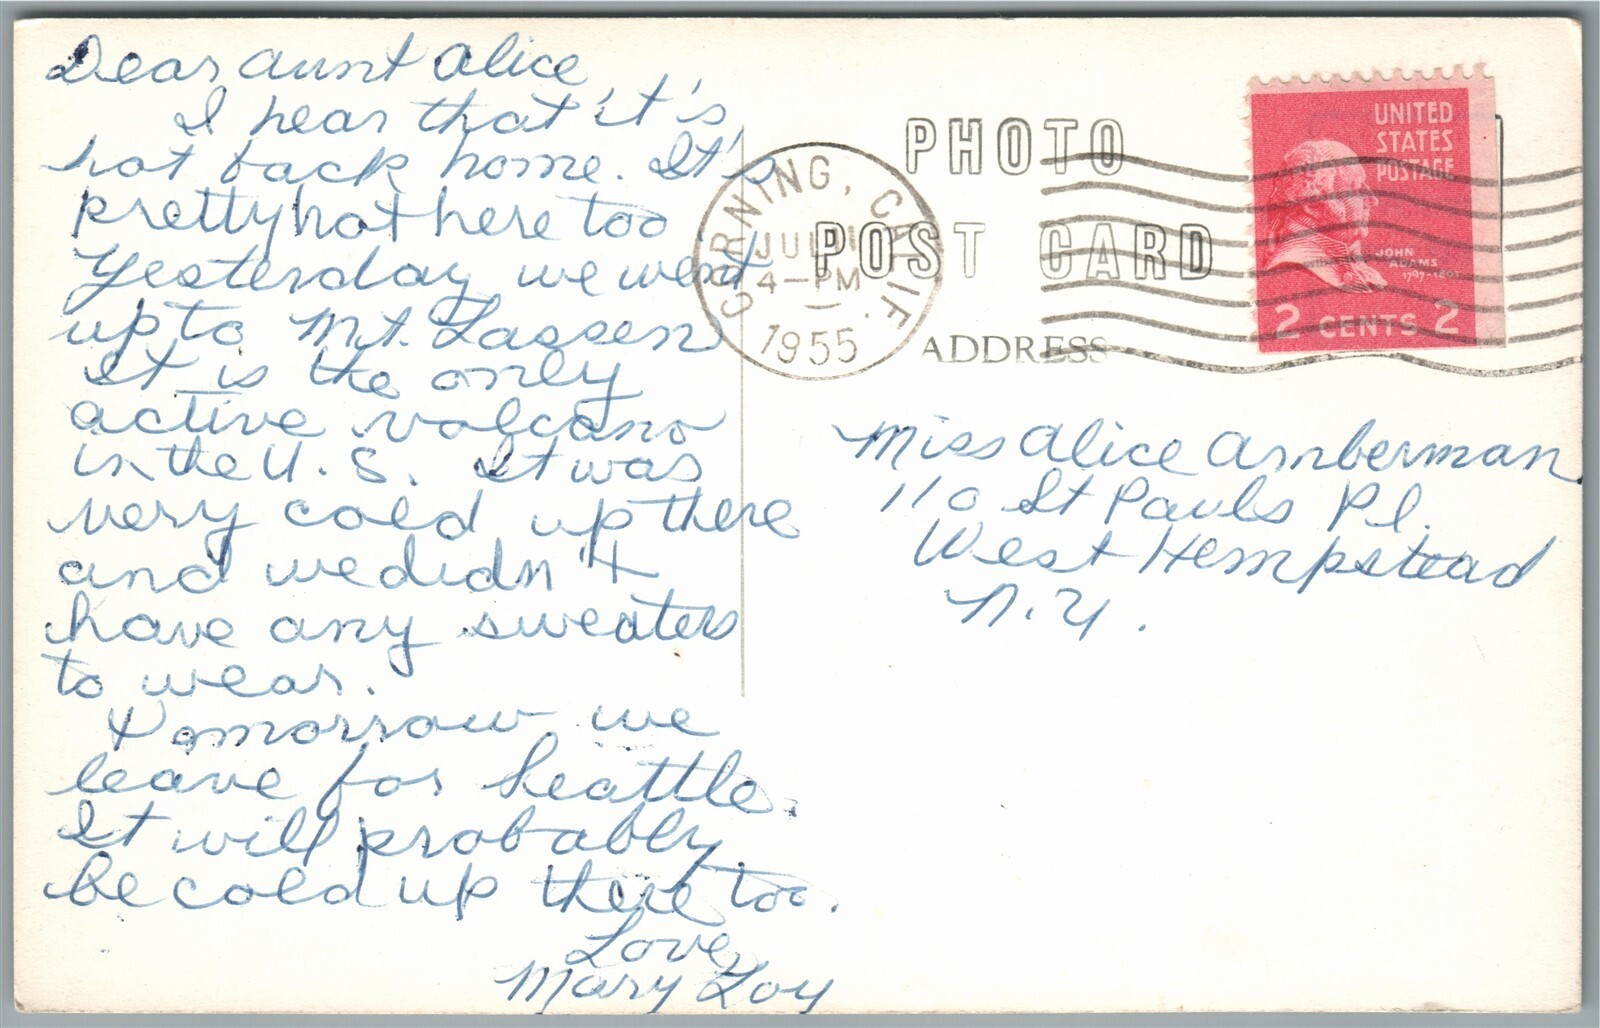 Dear Aunt Alice
I hear that it's
hot back home. It's
pretty hot here too
Yesterday we went
up to Mt. Lassen
It is the only
active volcano
in the U.S. It was
very cold up there
and we didn't
have any sweaters
to wear.
Tomorrow we
leave for Seattle.
It will probably
be cold up there too.
Love,
Mary Loy
PHOTO
POST CARD
ADDRESS
CORNING, CALIF.
4-PM
1955
UNITED
STATES
POSTAGE
JOHN
ADAMS
1797-1801
2 CENTS 2
Miss Alice Armberman
110 St Pauls Pl.
West Hempstead
N.Y.